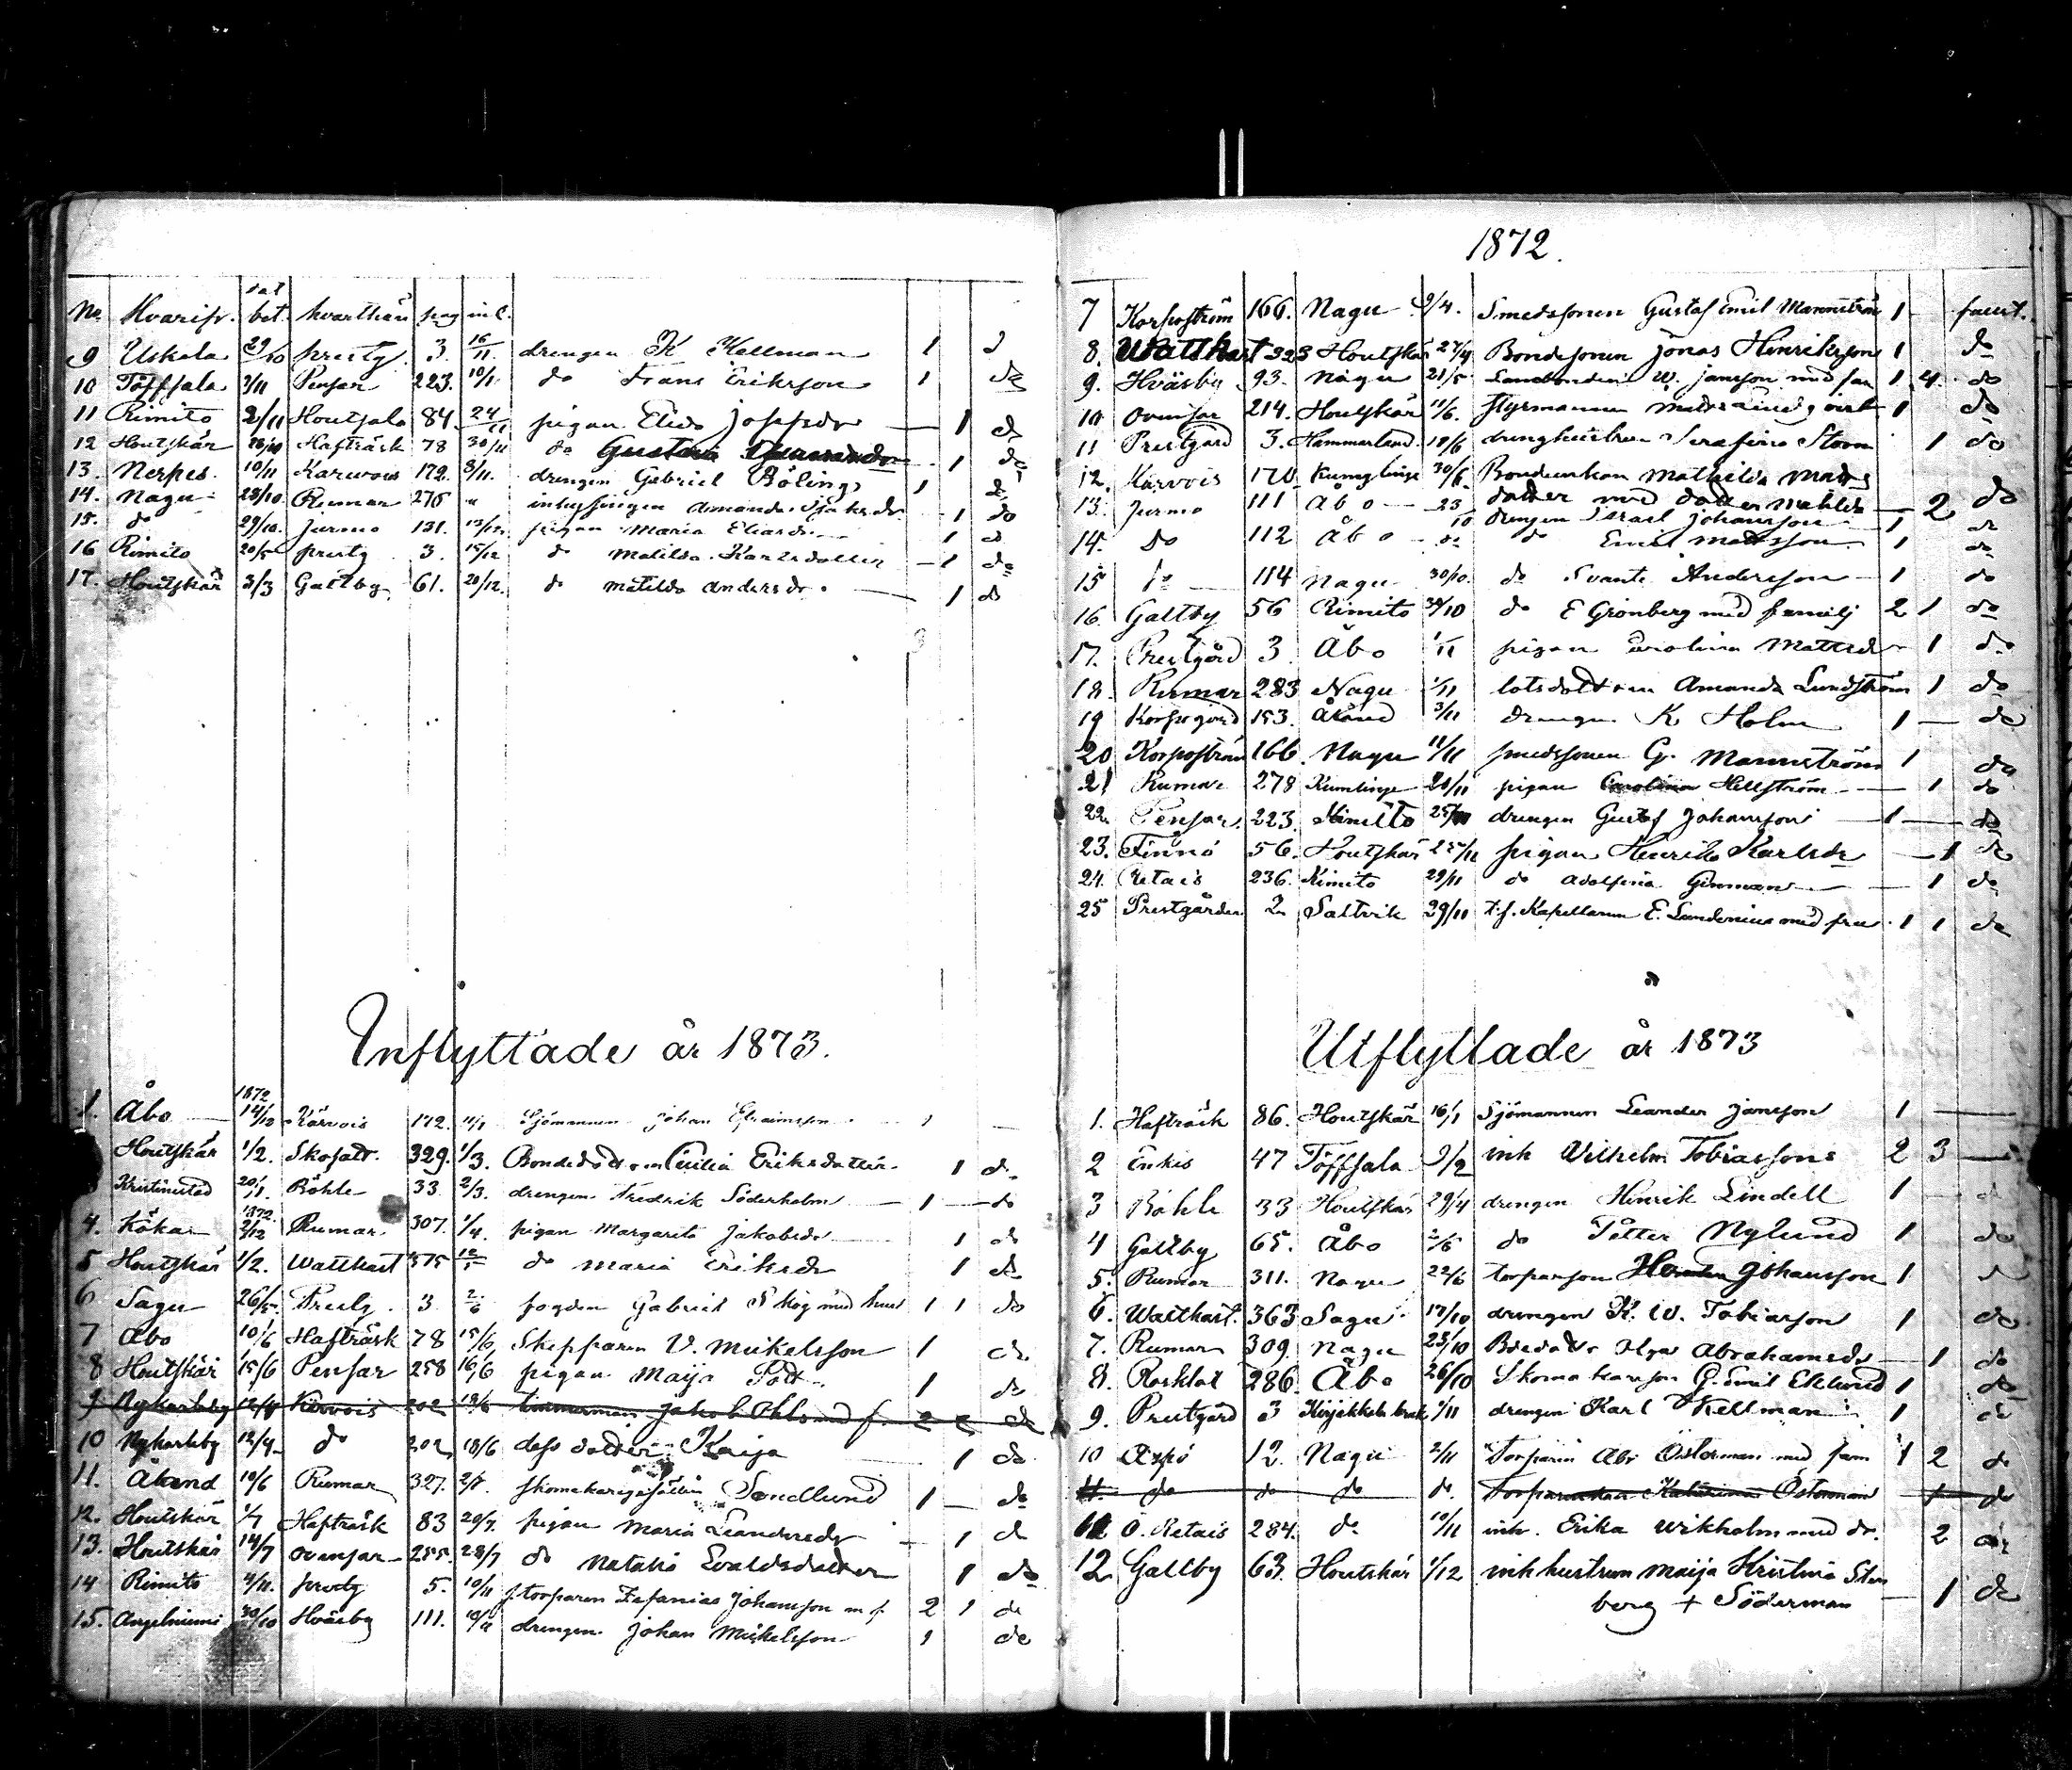 No Hvarifr. dat bet. hvarthän pag inl.
9 Uskela 29/10 prestg. 3. 16/11. drengen K Kellman 1 d
10 Töffsala 3/11 Pensar 223. 10/11 do Frans Erikson 1 do
11 Rimito 2/11 Houtsala 84 24/11 pigan Elida Josefsdr — 1 do
12 Houtskär 28/10 Hafträsk 78 30/11 do Gustava — 1 do
13. Nerpes 10/11 Karvois 172. 8/11. drengen Gabriel Röling 1 d
14. Nagu 28/10 Rumar 278 " inhysspigan Amanda Sjöbersdr — 1 do
15. do 29/10. Jurmo 131. 13/12. pigan Maria Eliasdr — 1 d
16 Rimito 20/5 prestg 3. 15/12 do Matilda Karlsdotter — 1 do
17. Houtskär 3/3 Galtby 61. 20/12. do Matilda Andersdr. — 1 do
Inflyttade år 1873.
1. Åbo 1872 14/12 Kärvois 172. 11/1 Sjömannen Johan Efraimsson 1 —
Houtskär 1/2. Skofatt. 329. 1/3. Bondedottren Cecilia Eriksdotter 1 do
Kristinestad 20/1. Böhle 33 2/3. drengen Fredrik Söderholm — 1 — do
4. Kökar 1872. 2/12 Rumar. 307. 1/4. pigan Margareta Jakobsdr 1 do
5 Houtskär 1/2. Wattkast 375 12/5 do Maria Eriksdr 1 do
6 Sagu 26/5. Prestg. 3 2/6 fogden Gabriel Skog med hust 1 1 do
7 Åbo 10/6 Hafträsk 78 15/6 Skepparen V. Mickelsson 1 do
8 Houtskär 15/6 Pensar 258 16/6 pigan Maija 1 do
9 Nykarleby 12/4 Kärvois 202 18/6 timmerman Jakob Ahls med f. 2 2 do
10 Nykarleby 12/4 do 202 18/6 dess dotter Kaija 1 do
11. Åland 10/6 Rumar 327. 2/7. skomakaregesällen Sandlund 1 — do
12. Houtskär 1/7 Hafträsk 83 20/7. pigan Maria Leandersdr — 1 do
13. Houtskär 14/7 Ovensar 255. 28/7 do Natalia Evaldsdotter 1 do
14 Rimito 4/11. prestg 5. 10/11 f. torparen Zefanias Johansson m f 2 1 do
15. Angelniemi 30/10 Hväsby 111. 10/11 drengen Johan Mickelsson 1 do
1872.
7 Korpoström 166. Nagu 9/4. Smedssonen Gustaf Emil Mannström 1 faust.
8. Wattkast 323 Houtskär 27/4 Bondesonen Jonas Henriksson 1 do
9. Hväsby 93. Nagu 21/5 Landbonden W. Jansson med fam 1 4 do
10 Ovensar 214. Houtskär 11/6. Styrmannen 1 do
11 Prestgård 3. Hammarland. 18/6 drenghustrun Serafina Storm 1 do
12. Kärvois 170 Kumlinge 30/6. Bondeenkan Mathilda Mats
dotter med dotter Mathilda — 2 do
13. Jurmo 111 Åbo — 23/10 drengen Israel Johansson — 1 do
14. do 112 Åbo — do do Emil Mattsson 1 do
15 do 114 Nagu 30/10. do Svante Andersson — 1 do
16. Galtby 56 Rimito 30/10 do E Grönberg med familj 2 1 do
17. Prestgård 3. Åbo 1/11 pigan Carolina Mattsdr 1 do
18. Rumar 283 Nagu 1/11 lotsdottren Amanda Lundström 1 do
19 Korpogård 153. Åland 3/11 drengen K Holm 1 — do
20 Korpoström 166. Nagu 11/11 smedssonen G. Mannström 1 do
21 Rumar 278 Kumlinge 20/11 pigan Carolina Hellström — 1 do
22. Pensar. 223. Kimitto 25/11 drengen Gustaf Johansson — 1 — do
23. Finnö 56. Houtskär 25/11 pigan Henrika Karlsdr — 1 do
24. Retais 236. Kimito 29/11 do Adolfina Ginman — 1 do
25 Prestgården 2 Saltvik 29/11 t.f. Kapellanen E. Lundenius med fru 1 1 do
Utflyttade år 1873
1. Hafträsk 86. Houtskär 16/1 Sjömannen Leander Jansson 1 —
2 Enkis 47 Töffsala 9/2 inh Wilhelm Tobiasson 2 3 —
3 Böhle 33 Houtskär 29/4 drengen Henrik Lindell 1 — d
4 Galtby 65. Åbo 2/6 do Petter Nylund 1 do
5. Rumar 311. Nagu 22/6 torparson Johansson 1 d
6. Wattkast. 363 Sagu 17/10 drengen K. W. Tobiasson 1 do
7. Rumar 309 Nagu 23/10 Bdedottr Olga Abrahamsdr — 1 do
8. Rosklot 286. Åbo 26/10 Skomakarson G. Emil Eklund 1 do
9. Prestgård 3 1/11 drengen Karl Kellman 1 do
10 Äspö 12. Nagu 2/11 Torparen Abr Österman med fam 1 2 do
11. do do do do. Torparenkan Katarina Österman 1 do
11 Ö. Retais 284. do 10/11 inh. Erika Wikholm med dr. 2 do
12 Galtby 63. Houtskär 1/12 inh hustrun Maija Kristina Sten
berg + Söderman — 1 do